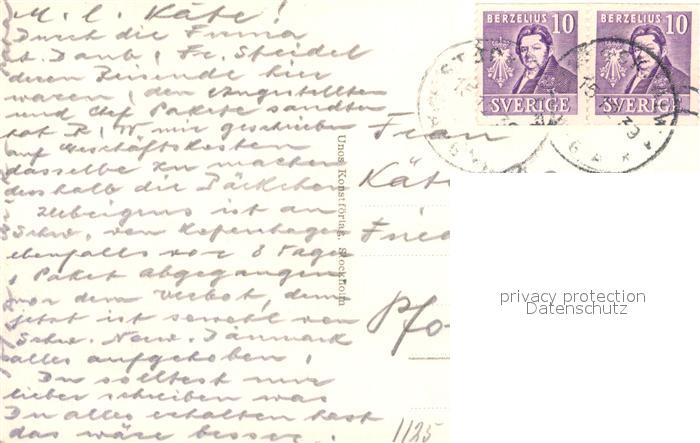 M. l. Käte!
Durch die Firma
A. Daub, Fr. Steidel
deren Reisende hier
waren, den Angestellten
und Chef Pakete sandten
hat R. W. mir geschrieben
auf Geschäftskosten
dasselbe zu machen
deshalb die Päckchen
Übrigens ist an
Schw. von Kopenhagen
ebenfalls vor 8 Tagen
1 Paket abgegangen
vor dem Verbot, denn
jetzt ist sowohl von
Schw. Norw. Dänmark
alles aufgehoben.
Du solltest nur
lieber schreiben was
Du alles erhalten hast
das wäre besser.
Unos Konstförlag, Stockholm
Frau
Käte
Fried
Pfo
1125
BERZELIUS 10
SVERIGE
BERZELIUS 10
SVERIGE
privacy protection
Datenschutz